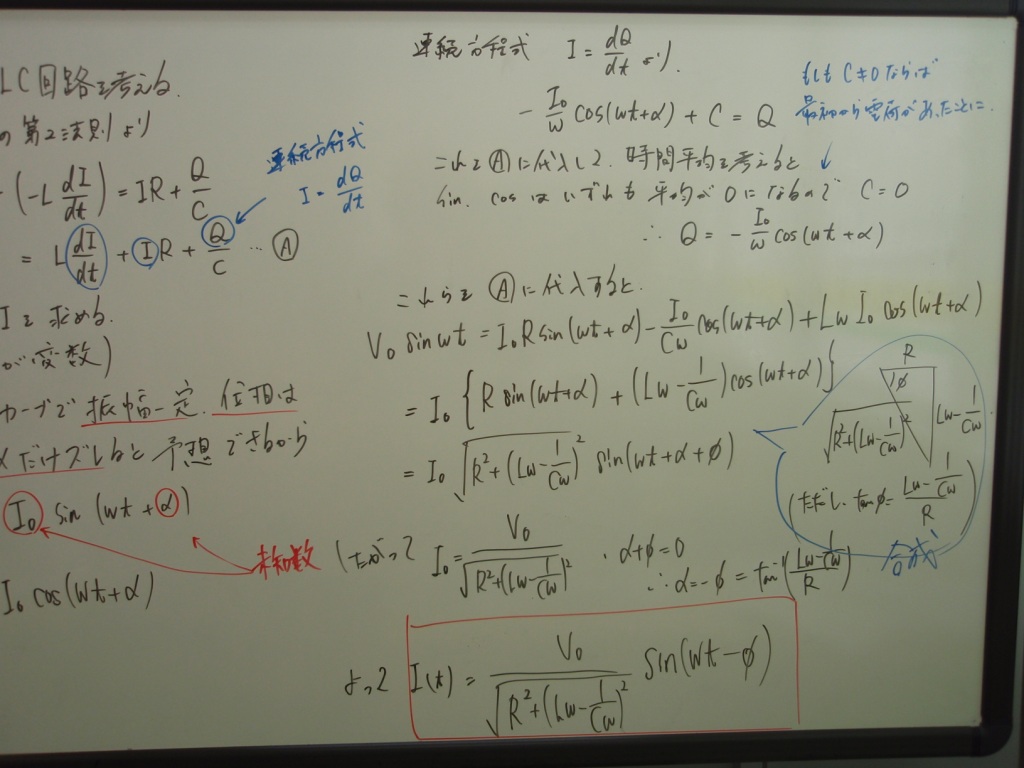 LC回路を考える.
の第2法則より
(-L dI/dt) = IR + Q/C
= L dI/dt + IR + Q/C … Ⓐ
連続方程式
I = dQ/dt
Iを求める.
が変数)
カーブで振幅一定.位相は
αだけズレると予想できるから
I₀ sin (ωt + α)
未知数
I₀ cos(ωt+α)
連続方程式 I = dQ/dt より.
- I₀/ω cos(ωt+α) + C = Q
もしも C≠0 ならば
最初から電荷があったことに.
これをⒶに代入して.時間平均を考えると
sin. cos はいずれも平均が0になるので C=0
∴ Q = - I₀/ω cos(ωt+α)
これらをⒶに代入すると.
V₀ sinωt = I₀R sin(ωt+α) - I₀/Cω cos(ωt+α) + Lω I₀ cos(ωt+α)
= I₀ { R sin(ωt+α) + (Lω - 1/Cω) cos(ωt+α) }
= I₀ √(R² + (Lω - 1/Cω)²) sin(ωt+α+φ)
R
φ
Lω - 1/Cω
√(R² + (Lω - 1/Cω)²)
(ただし、tanφ = (Lω - 1/Cω)/R)
合成
したがって I₀ = V₀/√(R² + (Lω - 1/Cω)²) . α+φ=0
∴ α = -φ = tan⁻¹((Lω - 1/Cω)/R)
よって I(t) = V₀/√(R² + (Lω - 1/Cω)²) sin(ωt - φ)